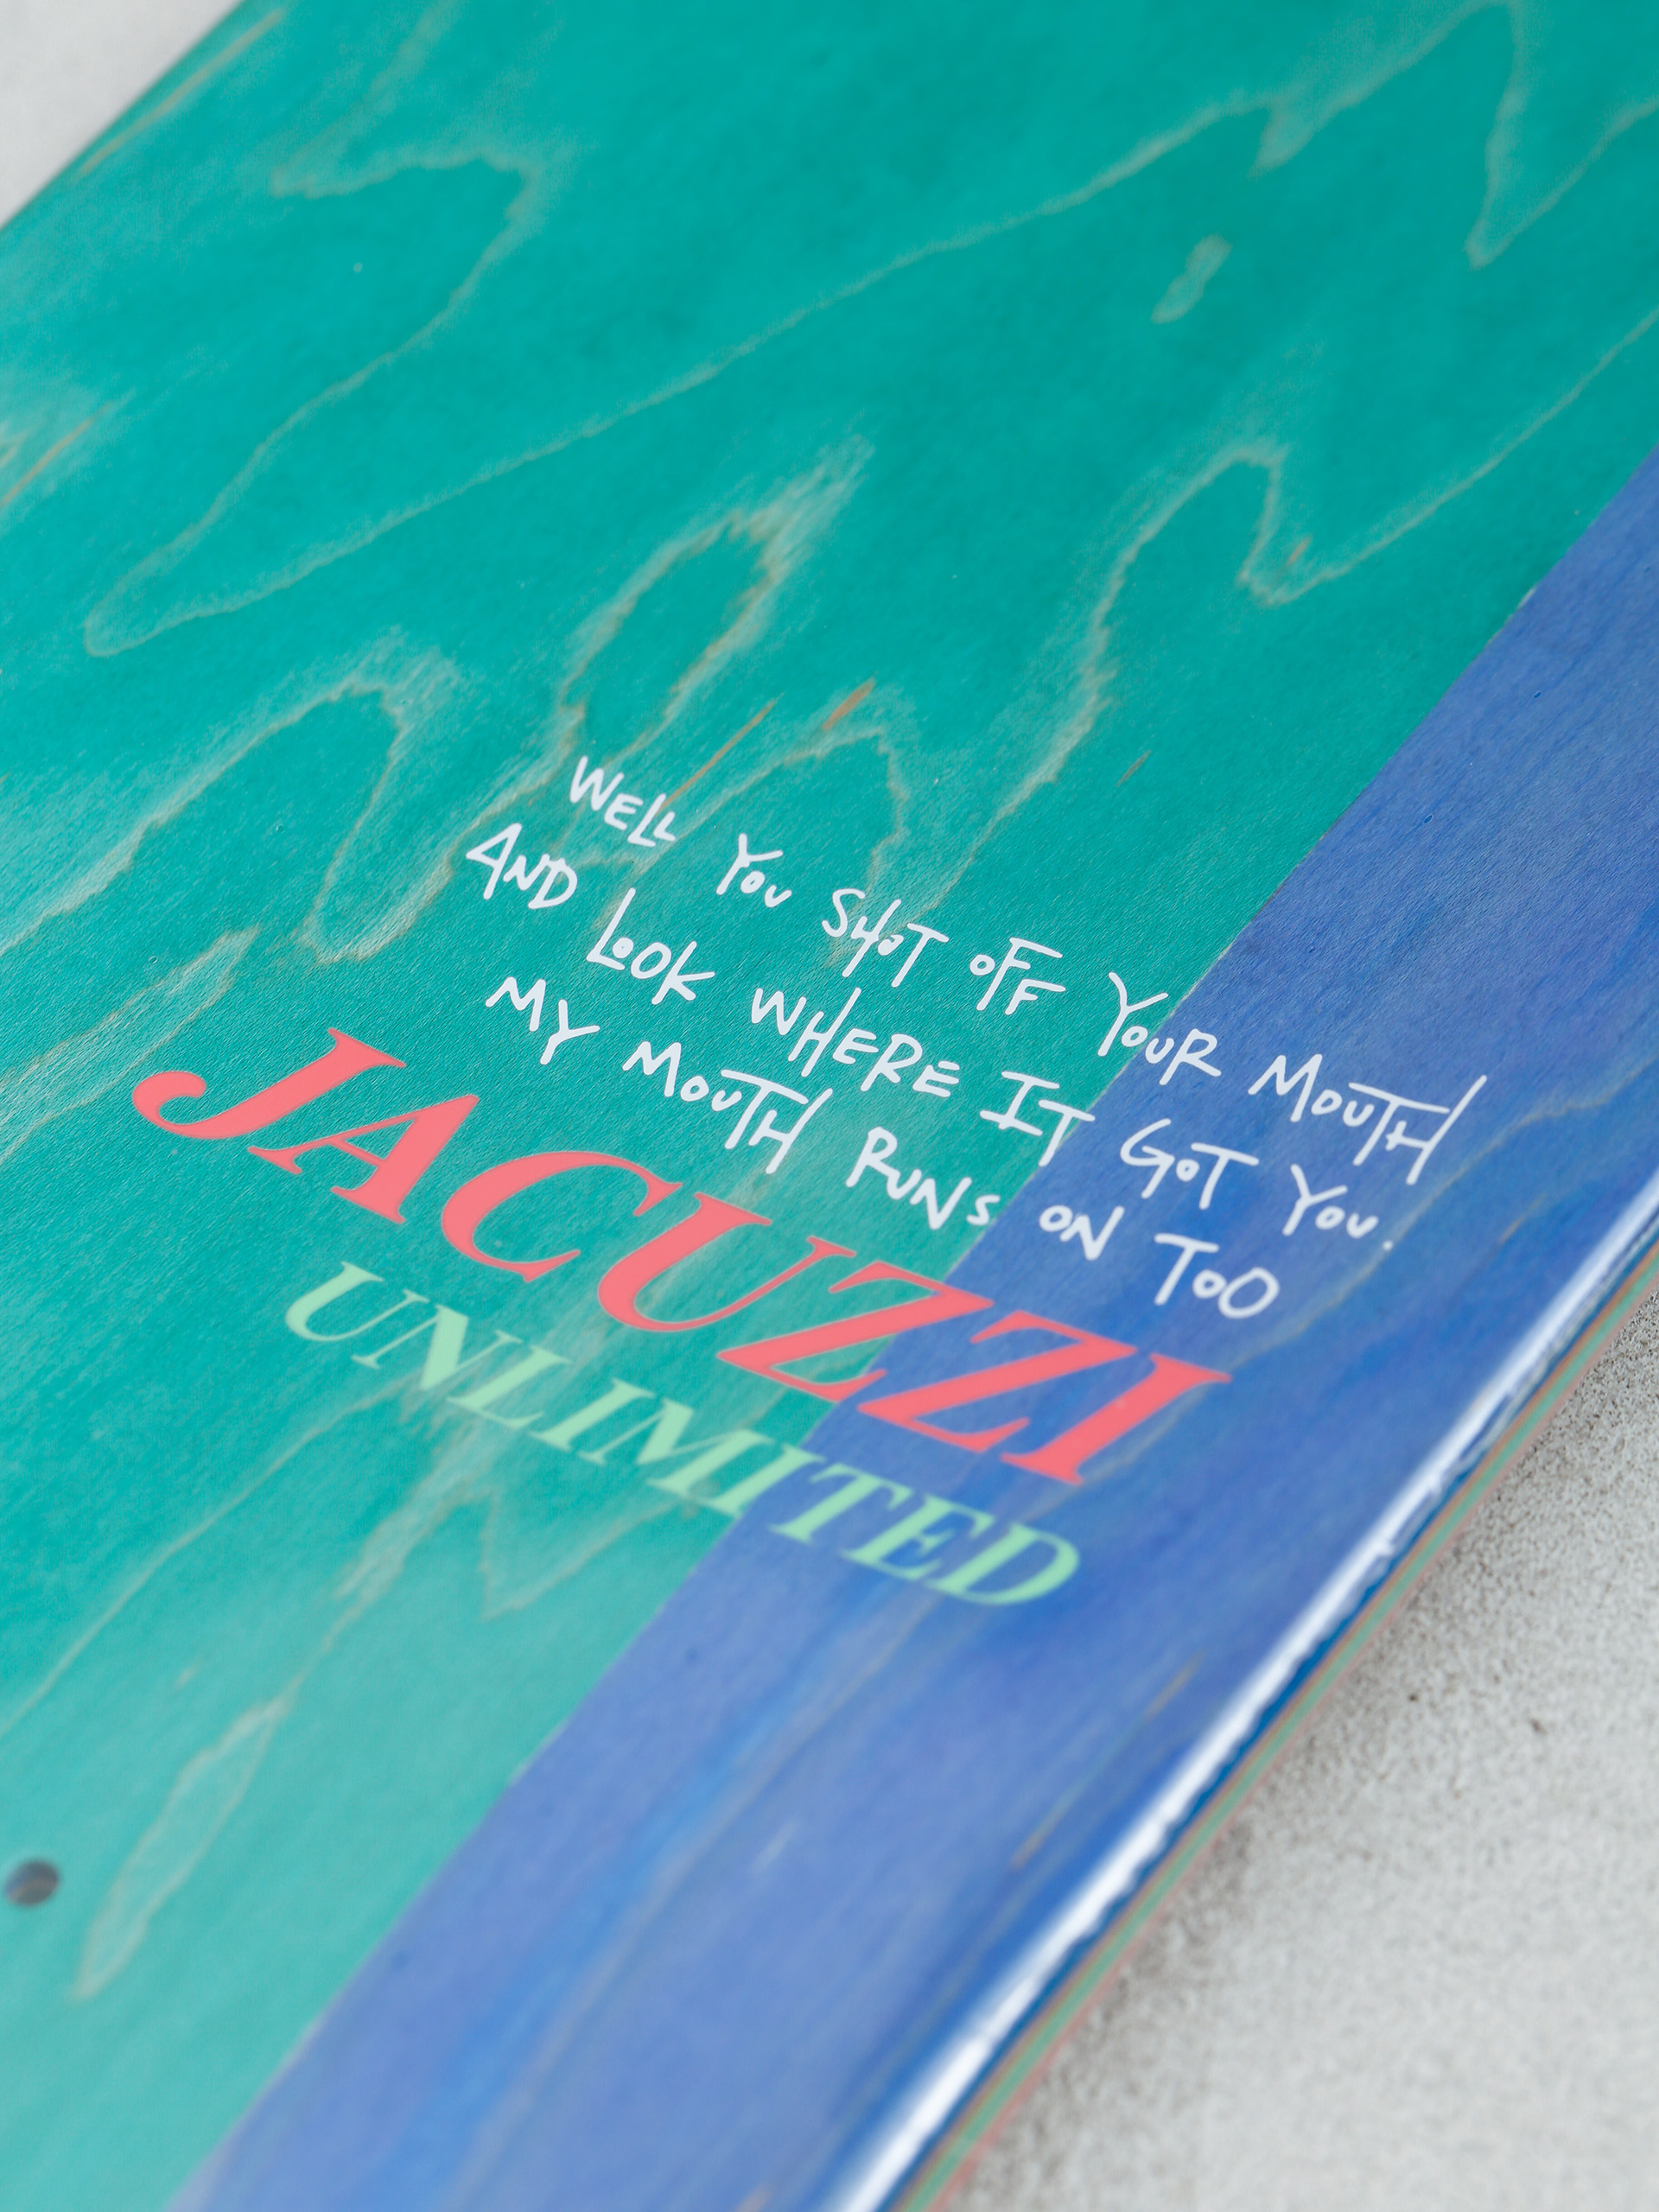 WELL YOU SHOT OFF YOUR MOUTH
AND LOOK WHERE IT GOT YOU.
MY MOUTH RUNS ON TOO
JACUZZI
UNLIMITED